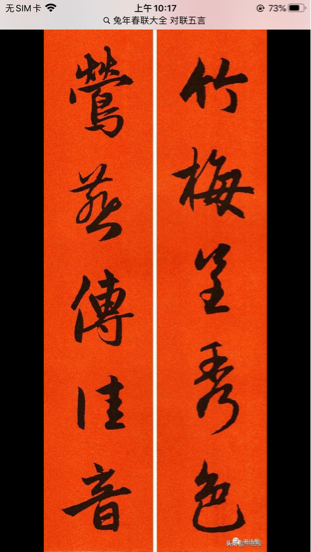 无SIM卡 上午10:17 73%
兔年春联大全 对联五言
竹梅呈秀色
莺燕傳佳音